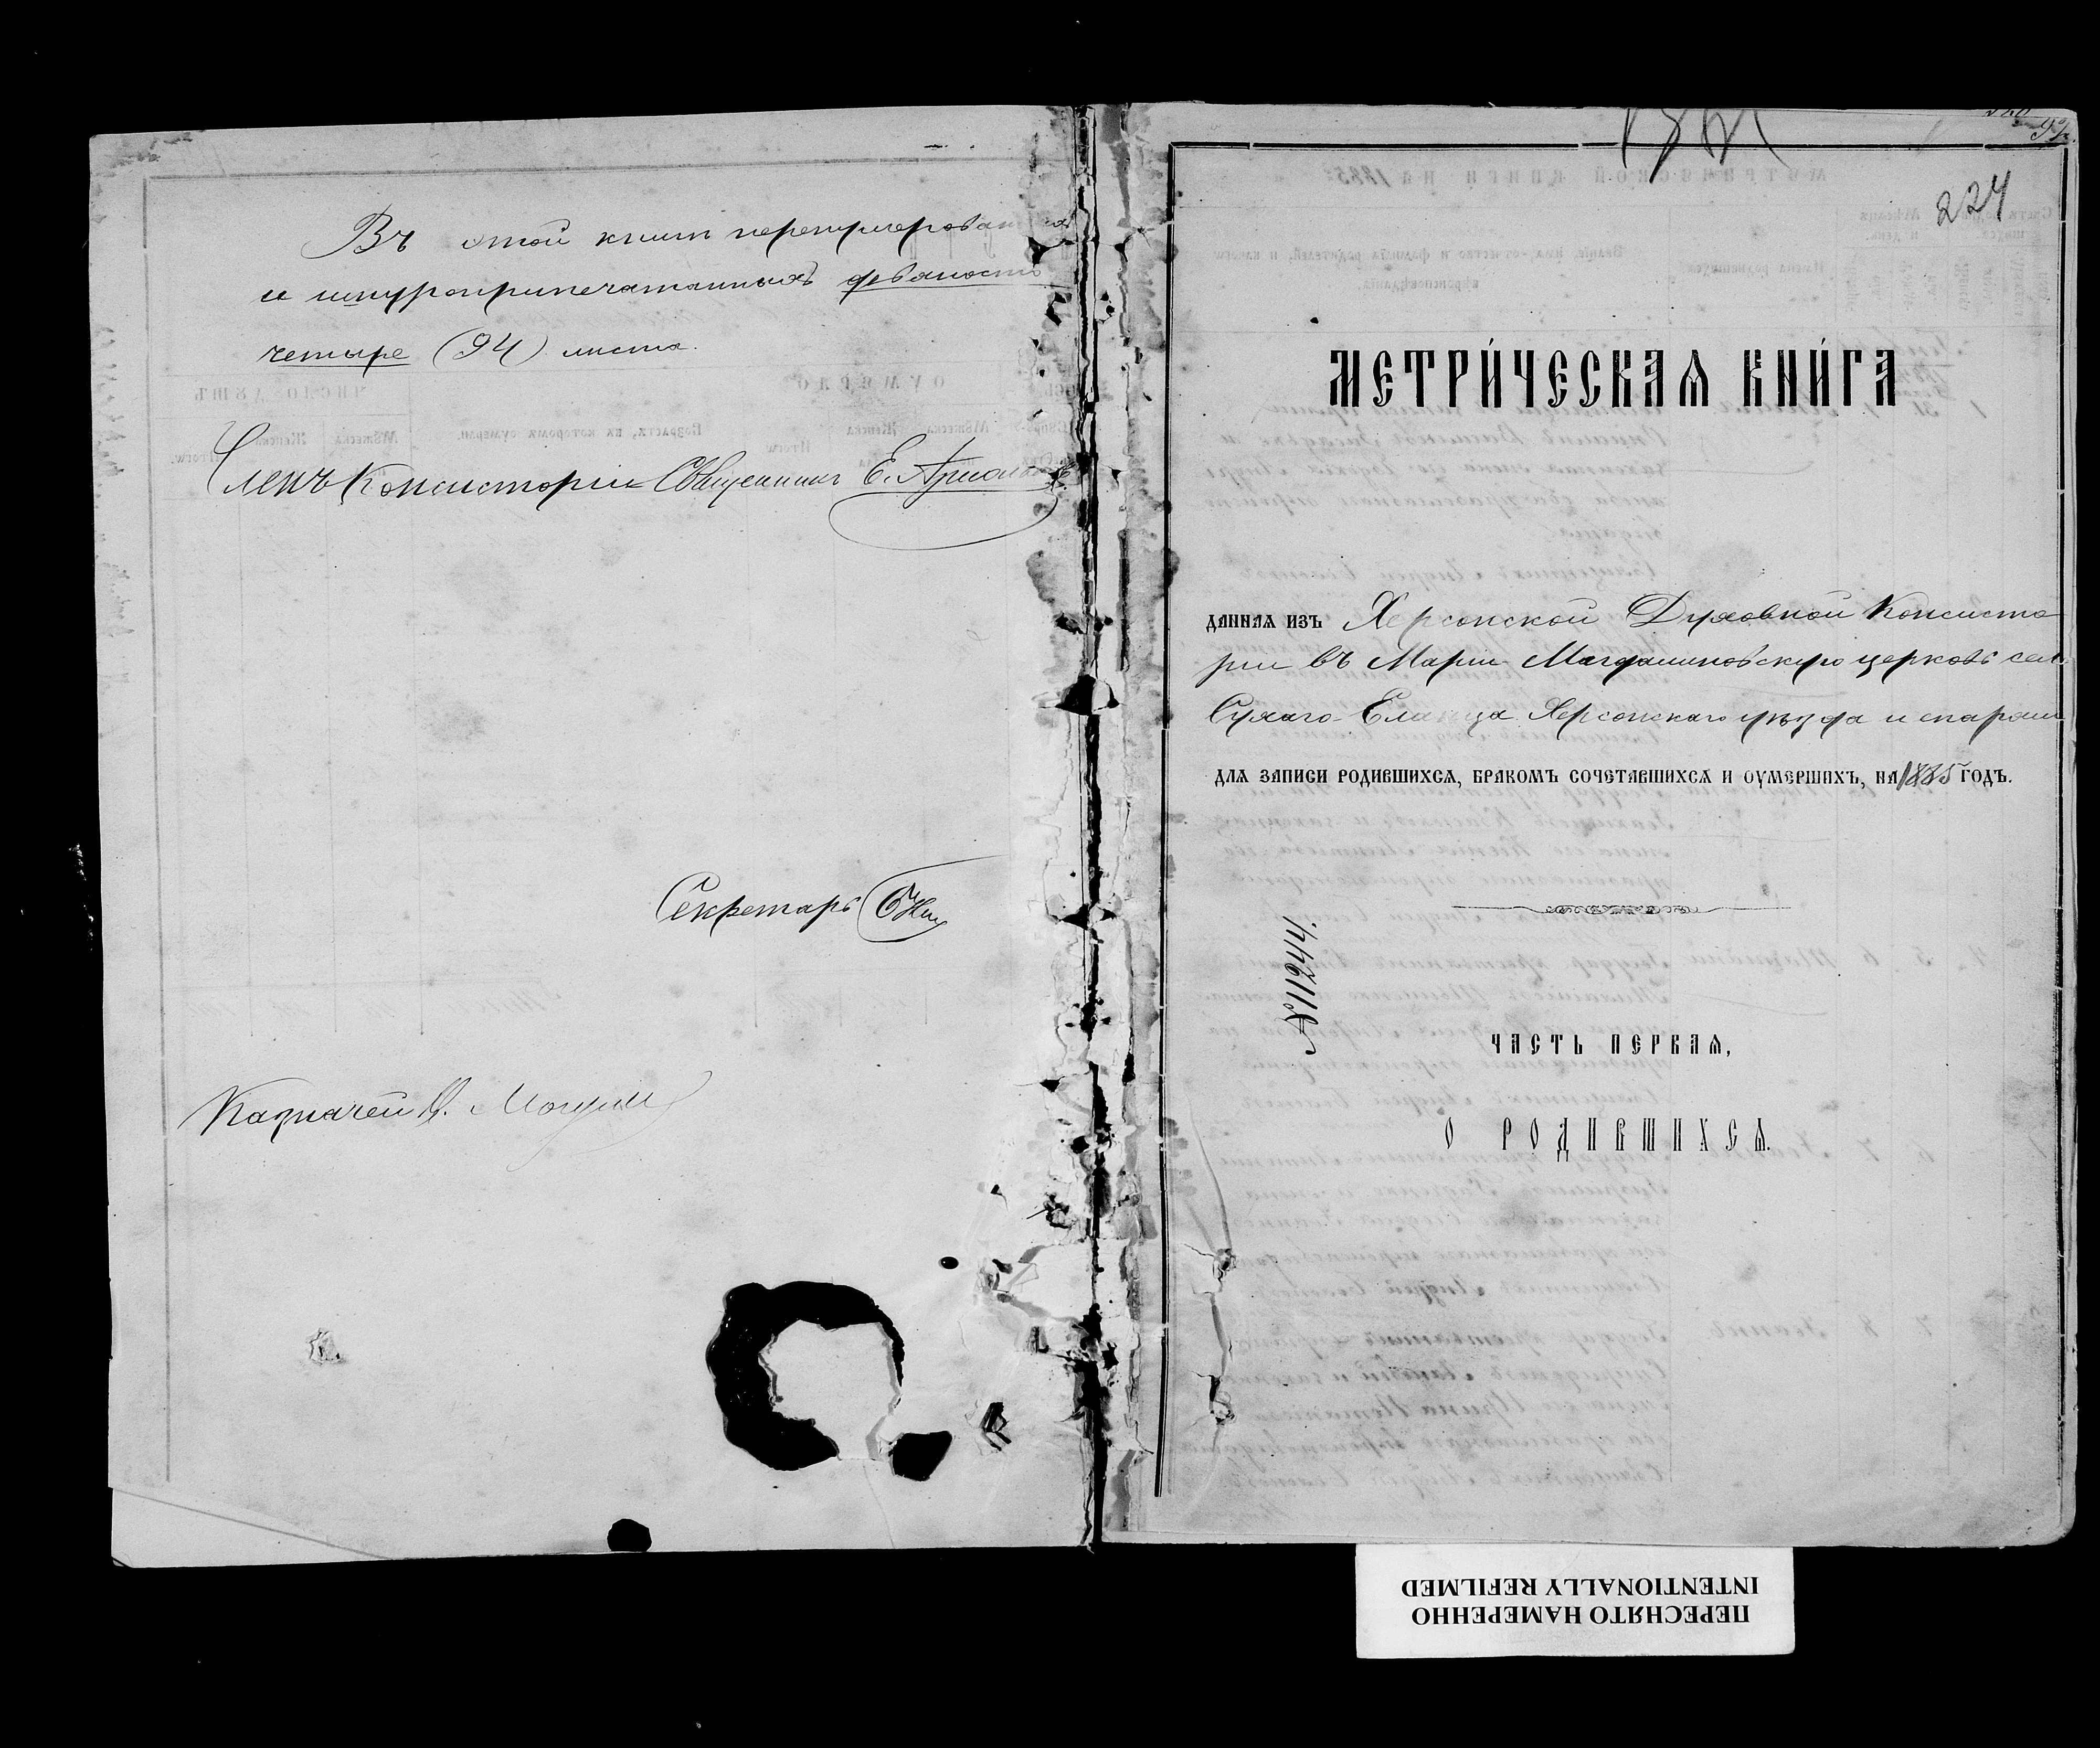 Въ этой книгѣ перенумерованныхъ
и шнуроприпечатанныхъ девяносто
четыре (94) листа.
Членъ Консисторіи Священникъ Е.
Секретарь
Казначей
224
МЕТРИ́ЧЕСКАѦ КНИ́ГА
ДАННАѦ ИЗЪ Херсонской Духовной Консисто
ріи въ Маріи Магдалиновскую церковь села
Сухаго Еланца Херсонскаго уѣзда и епархіи
ДЛѦ ЗАПИСИ РОДИВШИХСѦ, БРАКОМЪ СОЧЕТАВШИХСѦ И ОУМЕРШИХЪ, НА 1885 ГОДЪ.
№ 11244.
ЧАСТЬ ПЕРВАѦ,
О РОДИВШИХСѦ.
ПЕРЕСНЯТО НАМЕРЕННО
INTENTIONALLY REFILMED